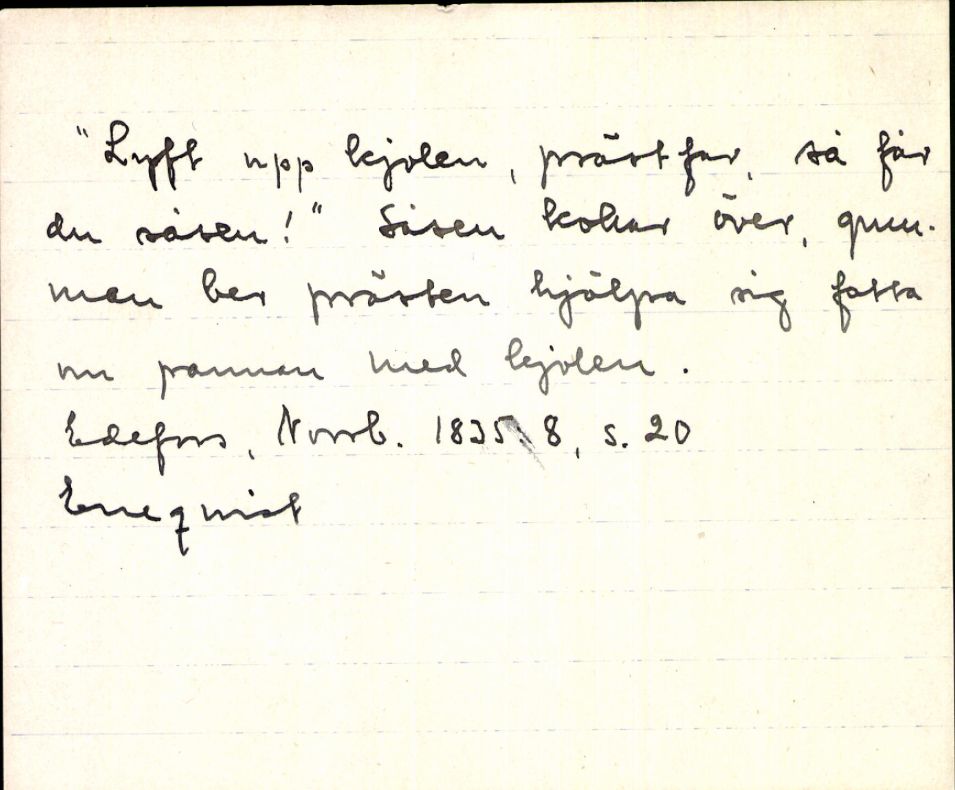 "Lyft upp kjolen, prästfar, så får
du såsen!" Såsen kokar över, gum-
man ber prästen hjälpa sig fatta
om pannan med kjolen.
Edefors, Norrb. 1835:8, s. 20
Enequist